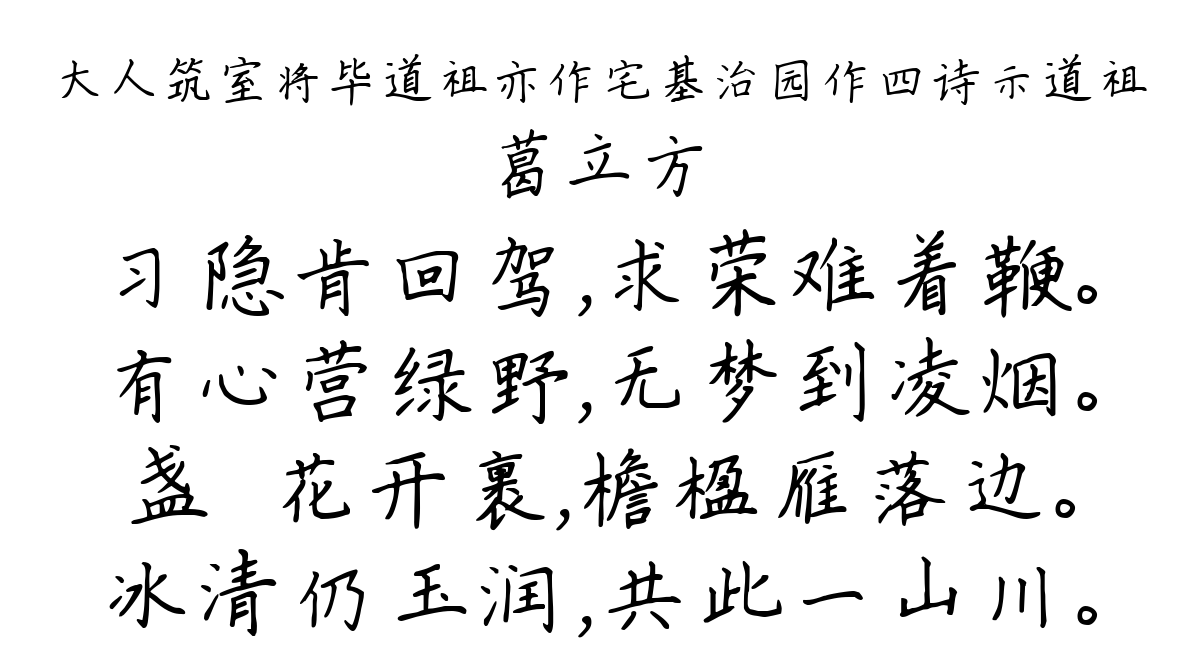 大人筑室将毕道祖亦作宅基治园作四诗示道祖
葛立方
习隐肯回驾,求荣难着鞭。
有心营绿野,无梦到凌烟。
盏 花开裹,檐楹雁落边。
冰清仍玉润,共此一山川。